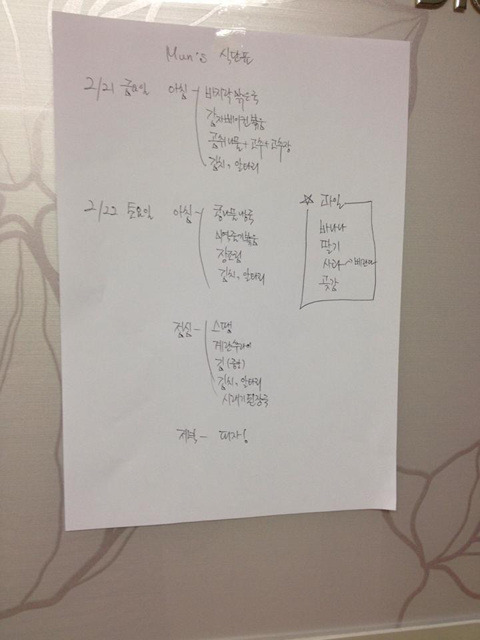 Mun's 식단표
2/21 금요일 아침 - 바지락 묶은국
감자베이컨볶음
곰취나물 + 고추 + 고추장
김치, 알타리
2/22 토요일 아침 - 콩나물냉국
미역줄기볶음
장조림
김치, 알타리
☆ 과일
바나나
딸기
사과
곶감
점심 - 스팸
계란후라이
김 (곱창)
김치, 알타리
시래기된장국
저녁 - 피자!